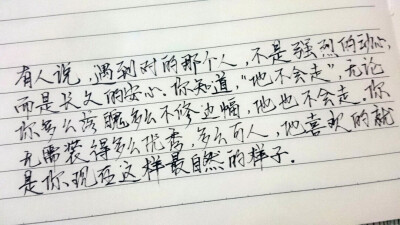 有人说，遇到对的那个人，不是强烈的动心，
而是长久的安心。你知道，“他不会走”，无论
你多么落魄多么不修边幅，“他也不会走。你
无需装得多么优秀，多么可人，他喜欢的就
是你现在这样最自然的样子.